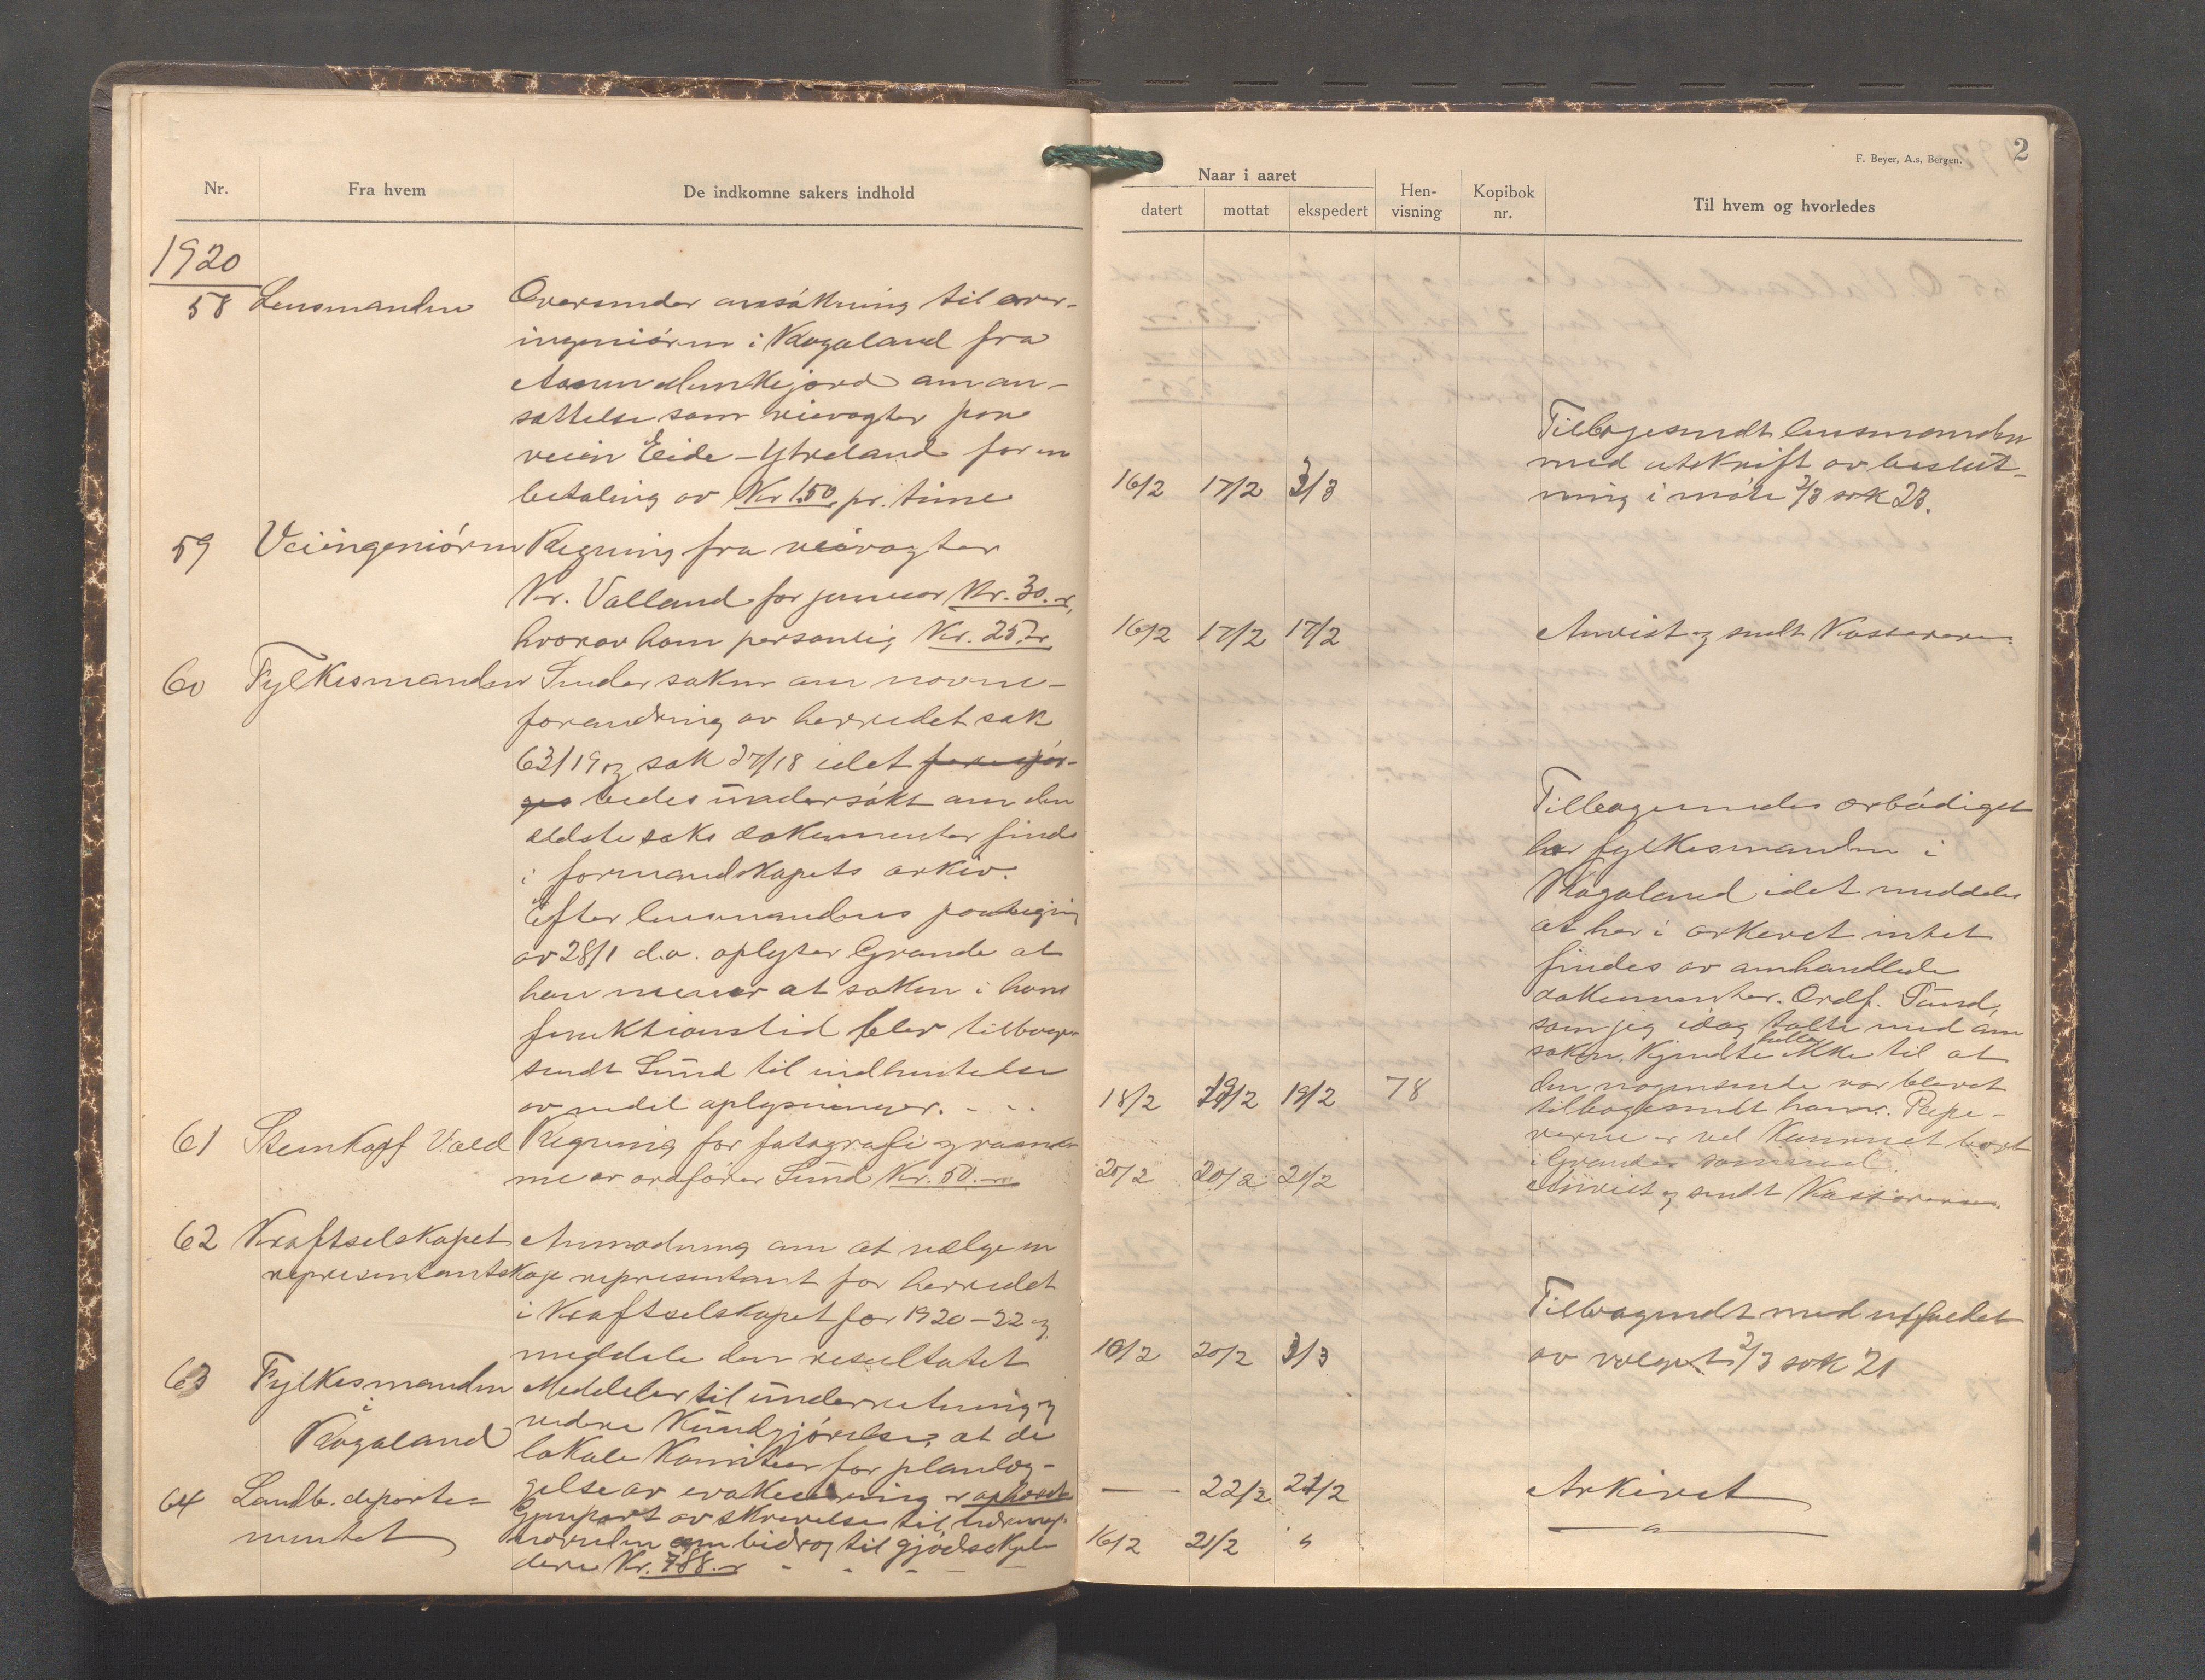 Nr.
Fra hvem
De indkomne sakers indhold
1920
58 Lensmanden
Oversender ansökning til over-
ingeniören i Rogaland fra
Kjord om an-
sættelse som veivogter paa
veien Eide - Ytreland for en
betaling av Kr 1.50 pr. time
59 Veiingeniören
Regning fra veivogter
Kr. Valland for januar Kr. 30.-,
hvorav ham personlig Kr. 25.-
60 Fylkesmanden
Sender saken om navne-
forandring av herredet sak
63/19 og sak 27/18 idet forespör-
ges bedes undersökt om den
ældste saks dokumenter finds
i formandskapets arkiv.
Efter lensmandens paategning
av 28/1 d.a. oplyser Grande at
han mener at saken i hans
funktionstid blev tilbage-
sendt Sund til indhentelse
av endel oplysninger. - - -
61 Steinkopf Wold
Regning for fotografi og ramme
av ordförer Sund Kr. 50.-
62 Kraftselskapet
representantskap
Anmodning om at vælge en
representant for herredet
i Kraftselskapet for 1920-22 og
meddele den resultatet
63 Fylkesmanden
i
Rogaland
Meddeler til underretning og
videre Kundgjörelse, at de
lokale Komiteer for planlæg-
gelse av evakuering er ophævet
64 Landb. departe-
mentet
Gjenpart av skrivelse til
om bidrag til gjödselkjel-
dere Kr. 788.- - - - -
2
F. Beyer, A.s, Bergen.
Naar i aaret
datert
mottat
ekspedert
Hen-
visning
Kopibok
nr.
Til hvem og hvorledes
16/2 17/2 3/3
Tilbagesendt lensmanden
med utskrift av beslut-
ning i möte 2/3 sak 23.
16/2 17/2 17/2
Anvist og sendt Kassereren.
18/2 19/2 19/2 78
Tilbagesendes ærbödigst
hr fylkesmanden i
Rogaland idet meddeles
at her i arkivet intet
findes av omhandlede
dokumenter. Ordf. Sund,
som jeg idag talte med om
saken, kjendte heller ikke til at
den nogensinde var blevet
tilbagesendt ham. Papi-
rerne er vel Kommet bort
i Grandes
20/2 20/2 21/2
Anvist og sendt Kassereren.
10/2 20/2 3/3
Tilbagesendt med utfaldet
av valget 2/3 sak 21
— - 22/2 22/2
Arkivet
16/2 21/2 "
— " —